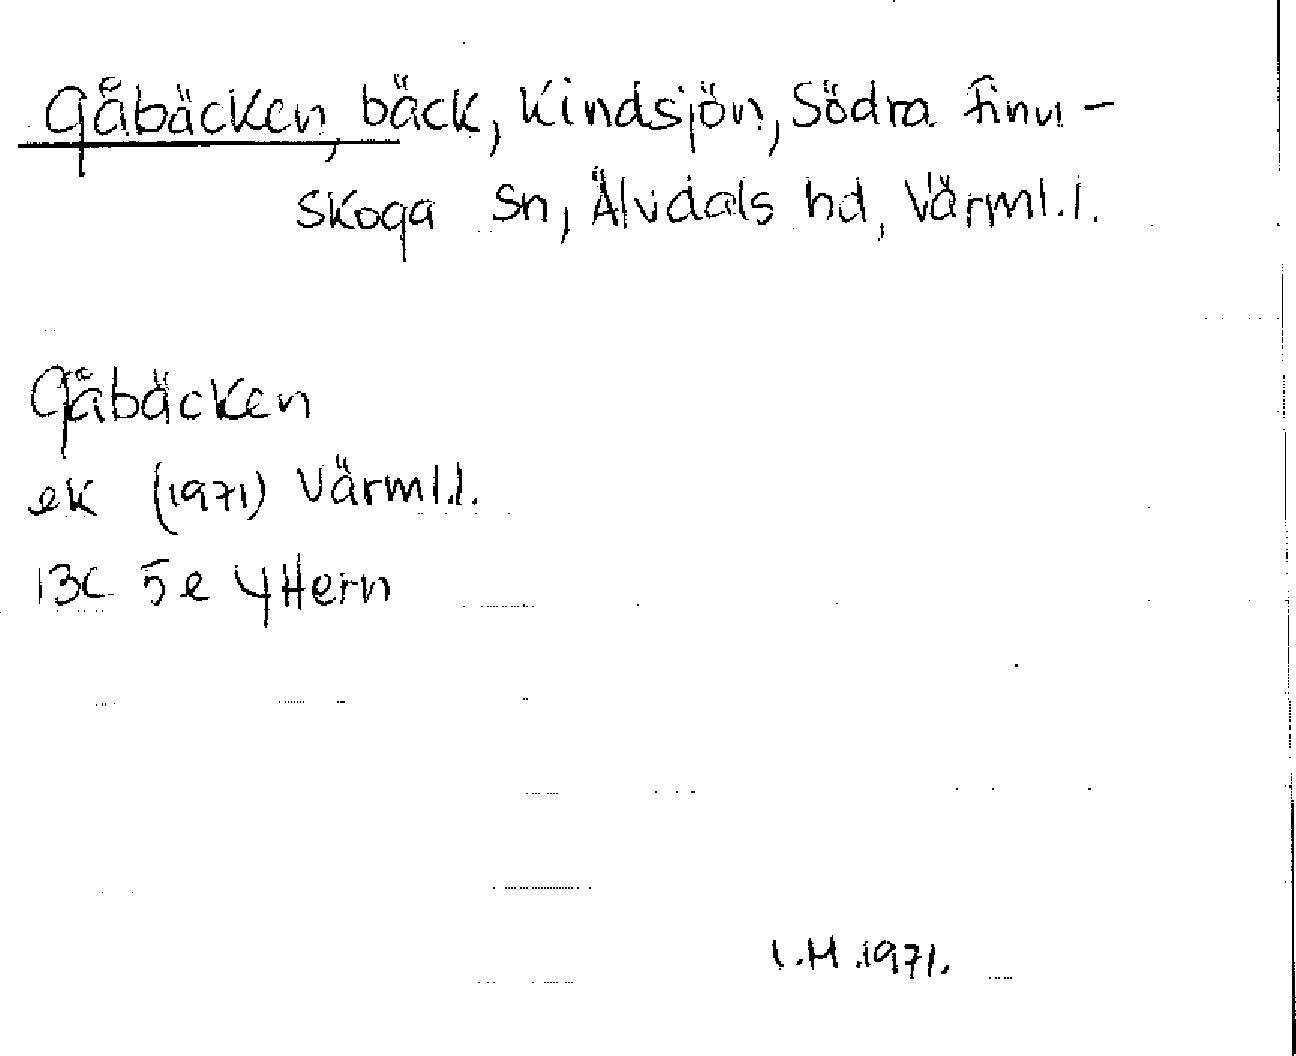 Gåbäcken, bäck, Kindsjön, Södra Finn-
skoga sn, Älvdals hd, Värml.l.
Gåbäcken
ek (1971) Värml.l.
13C 5e yttern
I.H.1971.